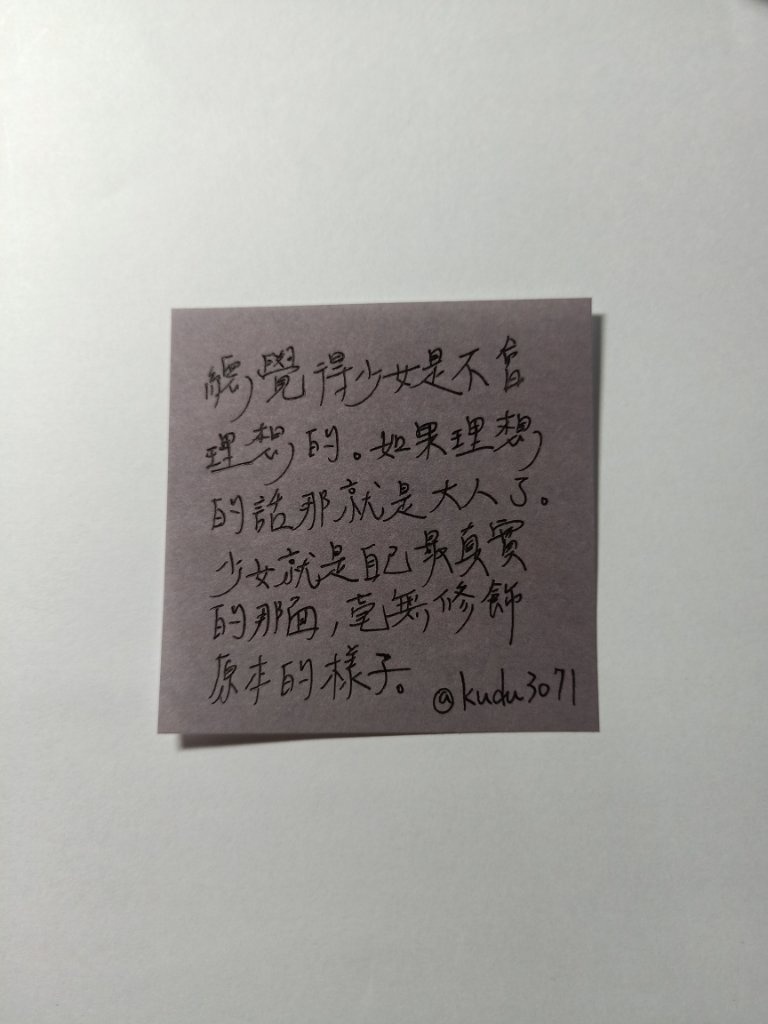 總覺得少女是不會
理想的。如果理想
的話那就是大人了。
少女就是自己最真實
的那面,毫無修飾
原本的樣子。
@kudu3071